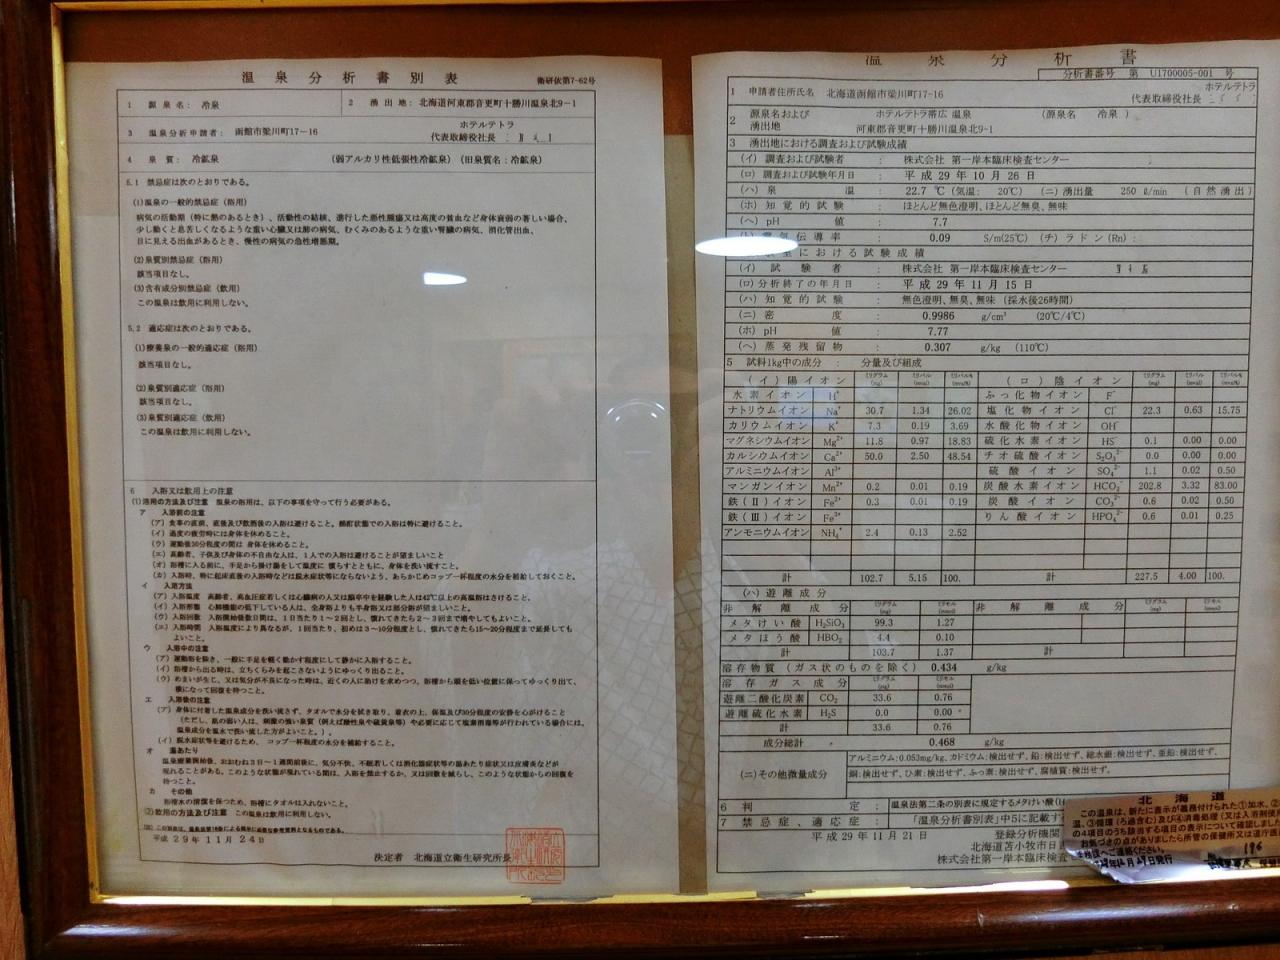 温泉分析書別表
衛研依第7-62号
1 源泉名: 冷泉
2 湧出地: 北海道河東郡音更町十勝川温泉北9-1
3 温泉分析申請者: 函館市梁川町17-16
ホテルテトラ
代表取締役社長
4 泉質: 冷鉱泉 (弱アルカリ性低張性冷鉱泉) (旧泉質名: 冷鉱泉)
5.1 禁忌症は次のとおりである。
(1)温泉の一般的禁忌症 (浴用)
病気の活動期 (特に熱のあるとき)、活動性の結核、進行した悪性腫瘍又は高度の貧血など身体衰弱の著しい場合、
少し動くと息苦しくなるような重い心臓又は肺の病気、むくみのあるような重い腎臓の病気、消化管出血、
目に見える出血があるとき、慢性の病気の急性増悪期。
(2)泉質別禁忌症 (浴用)
該当項目なし。
(3)含有成分別禁忌症 (飲用)
この温泉は飲用に利用しない。
5.2 適応症は次のとおりである。
(1)療養泉の一般的適応症 (浴用)
該当項目なし。
(2)泉質別適応症 (浴用)
該当項目なし。
(3)泉質別適応症 (飲用)
この温泉は飲用に利用しない。
6 入浴又は飲用上の注意
(1)浴用の方法及び注意 温泉の浴用は、以下の事項を守って行う必要がある。
ア 入浴前の注意
(ア) 食事の直前、直後及び飲酒後の入浴は避けること。酩酊状態での入浴は特に避けること。
(イ) 過度の疲労時には身体を休めること。
(ウ) 運動後30分程度の間は 身体を休めること。
(エ) 高齢者、子供及び身体の不自由な人は、1人での入浴は避けることが望ましいこと
(オ) 浴槽に入る前に、手足から掛け湯をして温度に慣らすとともに、身体を洗い流すこと。
(カ) 入浴時、特に起床直後の入浴時などは脱水症状等にならないよう、あらかじめコップ一杯程度の水分を補給しておくこと。
イ 入浴方法
(ア) 入浴温度 高齢者、高血圧症若しくは心臓病の人又は脳卒中を経験した人は42℃以上の高温浴はさけること。
(イ) 入浴形態 心肺機能の低下している人は、全身浴よりも半身浴又は部分浴が望ましいこと。
(ウ) 入浴回数 入浴開始後数日間は、1日当たり1~2回とし、慣れてきたら2~3回まで増やしてもよいこと。
(エ) 入浴時間 入浴温度により異なるが、1回当たり、初めは3~10分程度とし、慣れてきたら15~20分程度まで延長しても
よいこと。
ウ 入浴中の注意
(ア) 運動浴を除き、一般に手足を軽く動かす程度にして静かに入浴すること。
(イ) 浴槽から出る時は、立ちくらみを起こさないようにゆっくり出ること。
(ウ) めまいが生じ、又は気分が不良になった時は、近くの人に助けを求めつつ、浴槽から頭を低い位置に保ってゆっくり出て、
横になって回復を待つこと。
エ 入浴後の注意
(ア) 身体に付着した温泉成分を洗い流さず、タオルで水分を拭き取り、着衣の上、保温及び30分程度の安静を心がけること
(ただし、肌の弱い人は、刺激の強い泉質 (例えば酸性泉や硫黄泉等) や必要に応じて塩素消毒等が行われている場合には、
温泉成分を温水で洗い流した方がよいこと。)。
(イ) 脱水症状等を避けるため、コップ一杯程度の水分を補給すること。
オ 湯あたり
温泉療養開始後、おおむね3日~1週間前後に、気分不快、不眠若しくは消化器症状等の湯あたり症状又は皮膚炎などが
現れることがある。このような状態が現れている間は、入浴を禁止するか、又は回数を減らし、このような状態からの回復を
待つこと。
カ その他
浴槽水の清潔を保つため、浴槽にタオルは入れないこと。
(2)飲用の方法及び注意 この温泉は飲用に利用しない。
平成 29年 11月 24日
決定者 北海道立衛生研究所長
温泉分析書
分析書番号 第 U1700005-001 号
1 申請者住所氏名 北海道函館市梁川町17-16
ホテルテトラ
代表取締役社長
2 源泉名および湧出地 ホテルテトラ帯広 温泉 (源泉名 冷泉)
河東郡音更町十勝川温泉北9-1
3 湧出地における調査および試験成績
(イ) 調査および試験者 : 株式会社 第一岸本臨床検査センター
(ロ) 調査および試験年月日 : 平成 29年 10月 26日
(ハ) 泉温 : 22.7 ℃ (気温: 20℃) (ニ) 湧出量 250 ℓ/min (自然湧出)
(ホ) 知覚的試験 : ほとんど無色澄明、ほとんど無臭、無味
(ヘ) pH値 : 7.7
(ト) 電気伝導率 : 0.09 S/m(25℃) (チ) ラドン(Rn) :
室における試験成績
(イ) 試験者 : 株式会社 第一岸本臨床検査センター
(ロ) 分析終了の年月日 : 平成 29年 11月 15日
(ハ) 知覚的試験 : 無色澄明、無臭、無味 (採水後26時間)
(ニ) 密度 : 0.9986 g/cm³ (20℃/4℃)
(ホ) pH値 : 7.77
(ヘ) 蒸発残留物 : 0.307 g/kg (110℃)
5 試料1kg中の成分 : 分量及び組成
(イ) 陽イオン ミリグラム(mg) ミリバル(mval) ミリバル%(mval%) (ロ) 陰イオン ミリグラム(mg) ミリバル(mval) ミリバル%(mval%)
水素イオン H⁺ ふっ化物イオン F⁻
ナトリウムイオン Na⁺ 30.7 1.34 26.02 塩化物イオン Cl⁻ 22.3 0.63 15.75
カリウムイオン K⁺ 7.3 0.19 3.69 水酸化物イオン OH⁻
マグネシウムイオン Mg²⁺ 11.8 0.97 18.83 硫化水素イオン HS⁻ 0.1 0.00 0.00
カルシウムイオン Ca²⁺ 50.0 2.50 48.54 チオ硫酸イオン S₂O₃²⁻ 0.0 0.00 0.00
アルミニウムイオン Al³⁺ 硫酸イオン SO₄²⁻ 1.1 0.02 0.50
マンガンイオン Mn²⁺ 0.2 0.01 0.19 炭酸水素イオン HCO₃⁻ 202.8 3.32 83.00
鉄(II)イオン Fe²⁺ 0.3 0.01 0.19 炭酸イオン CO₃²⁻ 0.6 0.02 0.50
鉄(III)イオン Fe³⁺ りん酸イオン HPO₄²⁻ 0.6 0.01 0.25
アンモニウムイオン NH₄⁺ 2.4 0.13 2.52
計 102.7 5.15 100. 計 227.5 4.00 100.
(ハ) 遊離成分
非解離成分 ミリグラム(mg) ミリモル(mmol) 非解離成分 ミリグラム(mg) ミリモル(mmol)
メタけい酸 H₂SiO₃ 99.3 1.27
メタほう酸 HBO₂ 4.4 0.10
計 103.7 1.37 計
溶存物質 (ガス状のものを除く) 0.434 g/kg
溶存ガス成分 ミリグラム(mg) ミリモル(mmol)
遊離二酸化炭素 CO₂ 33.6 0.76
遊離硫化水素 H₂S 0.0 0.00
計 33.6 0.76
成分総計 0.468 g/kg
(ニ)その他微量成分 アルミニウム:0.053mg/kg、カドミウム:検出せず、鉛:検出せず、総水銀:検出せず、亜鉛:検出せず、
銅:検出せず、ひ素:検出せず、ふっ素:検出せず、腐植質:検出せず。
6 判定 : 温泉法第二条の別表に規定するメタけい酸(H
7 禁忌症、適応症 : 「温泉分析書別表」中5に記載す
平成 29年 11月 21日 登録分析機関
北海道苫小牧市日
株式会社第一岸本臨床検査
北海道
この温泉は、新たに表示が義務付けられた①加水、②
温、③循環(ろ過含む)及び④消毒処理(又は入浴剤使用
の4項目のうち該当する項目の表示について確認しまし
お気づきの点がありましたら所管の保健所又は道庁医
196